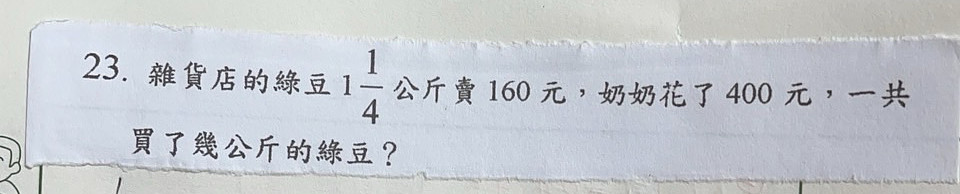 23. 雜貨店的綠豆 1 1/4 公斤賣 160 元，奶奶花了 400 元，一共
買了幾公斤的綠豆？